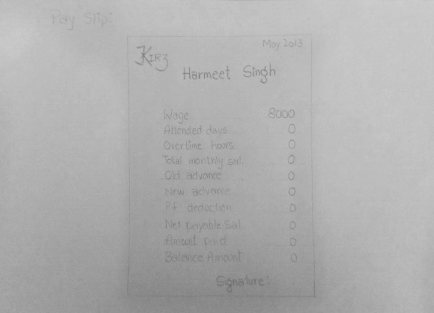 Pay Slip:
May 2013
Harmeet Singh
Wage 8000
Attended days 0
Overtime Hours 0
Total monthly sal. 0
Old advance 0
New advance 0
P.F deduction 0
Net payable sal. 0
Amount paid 0
Balance Amount 0
Signature: